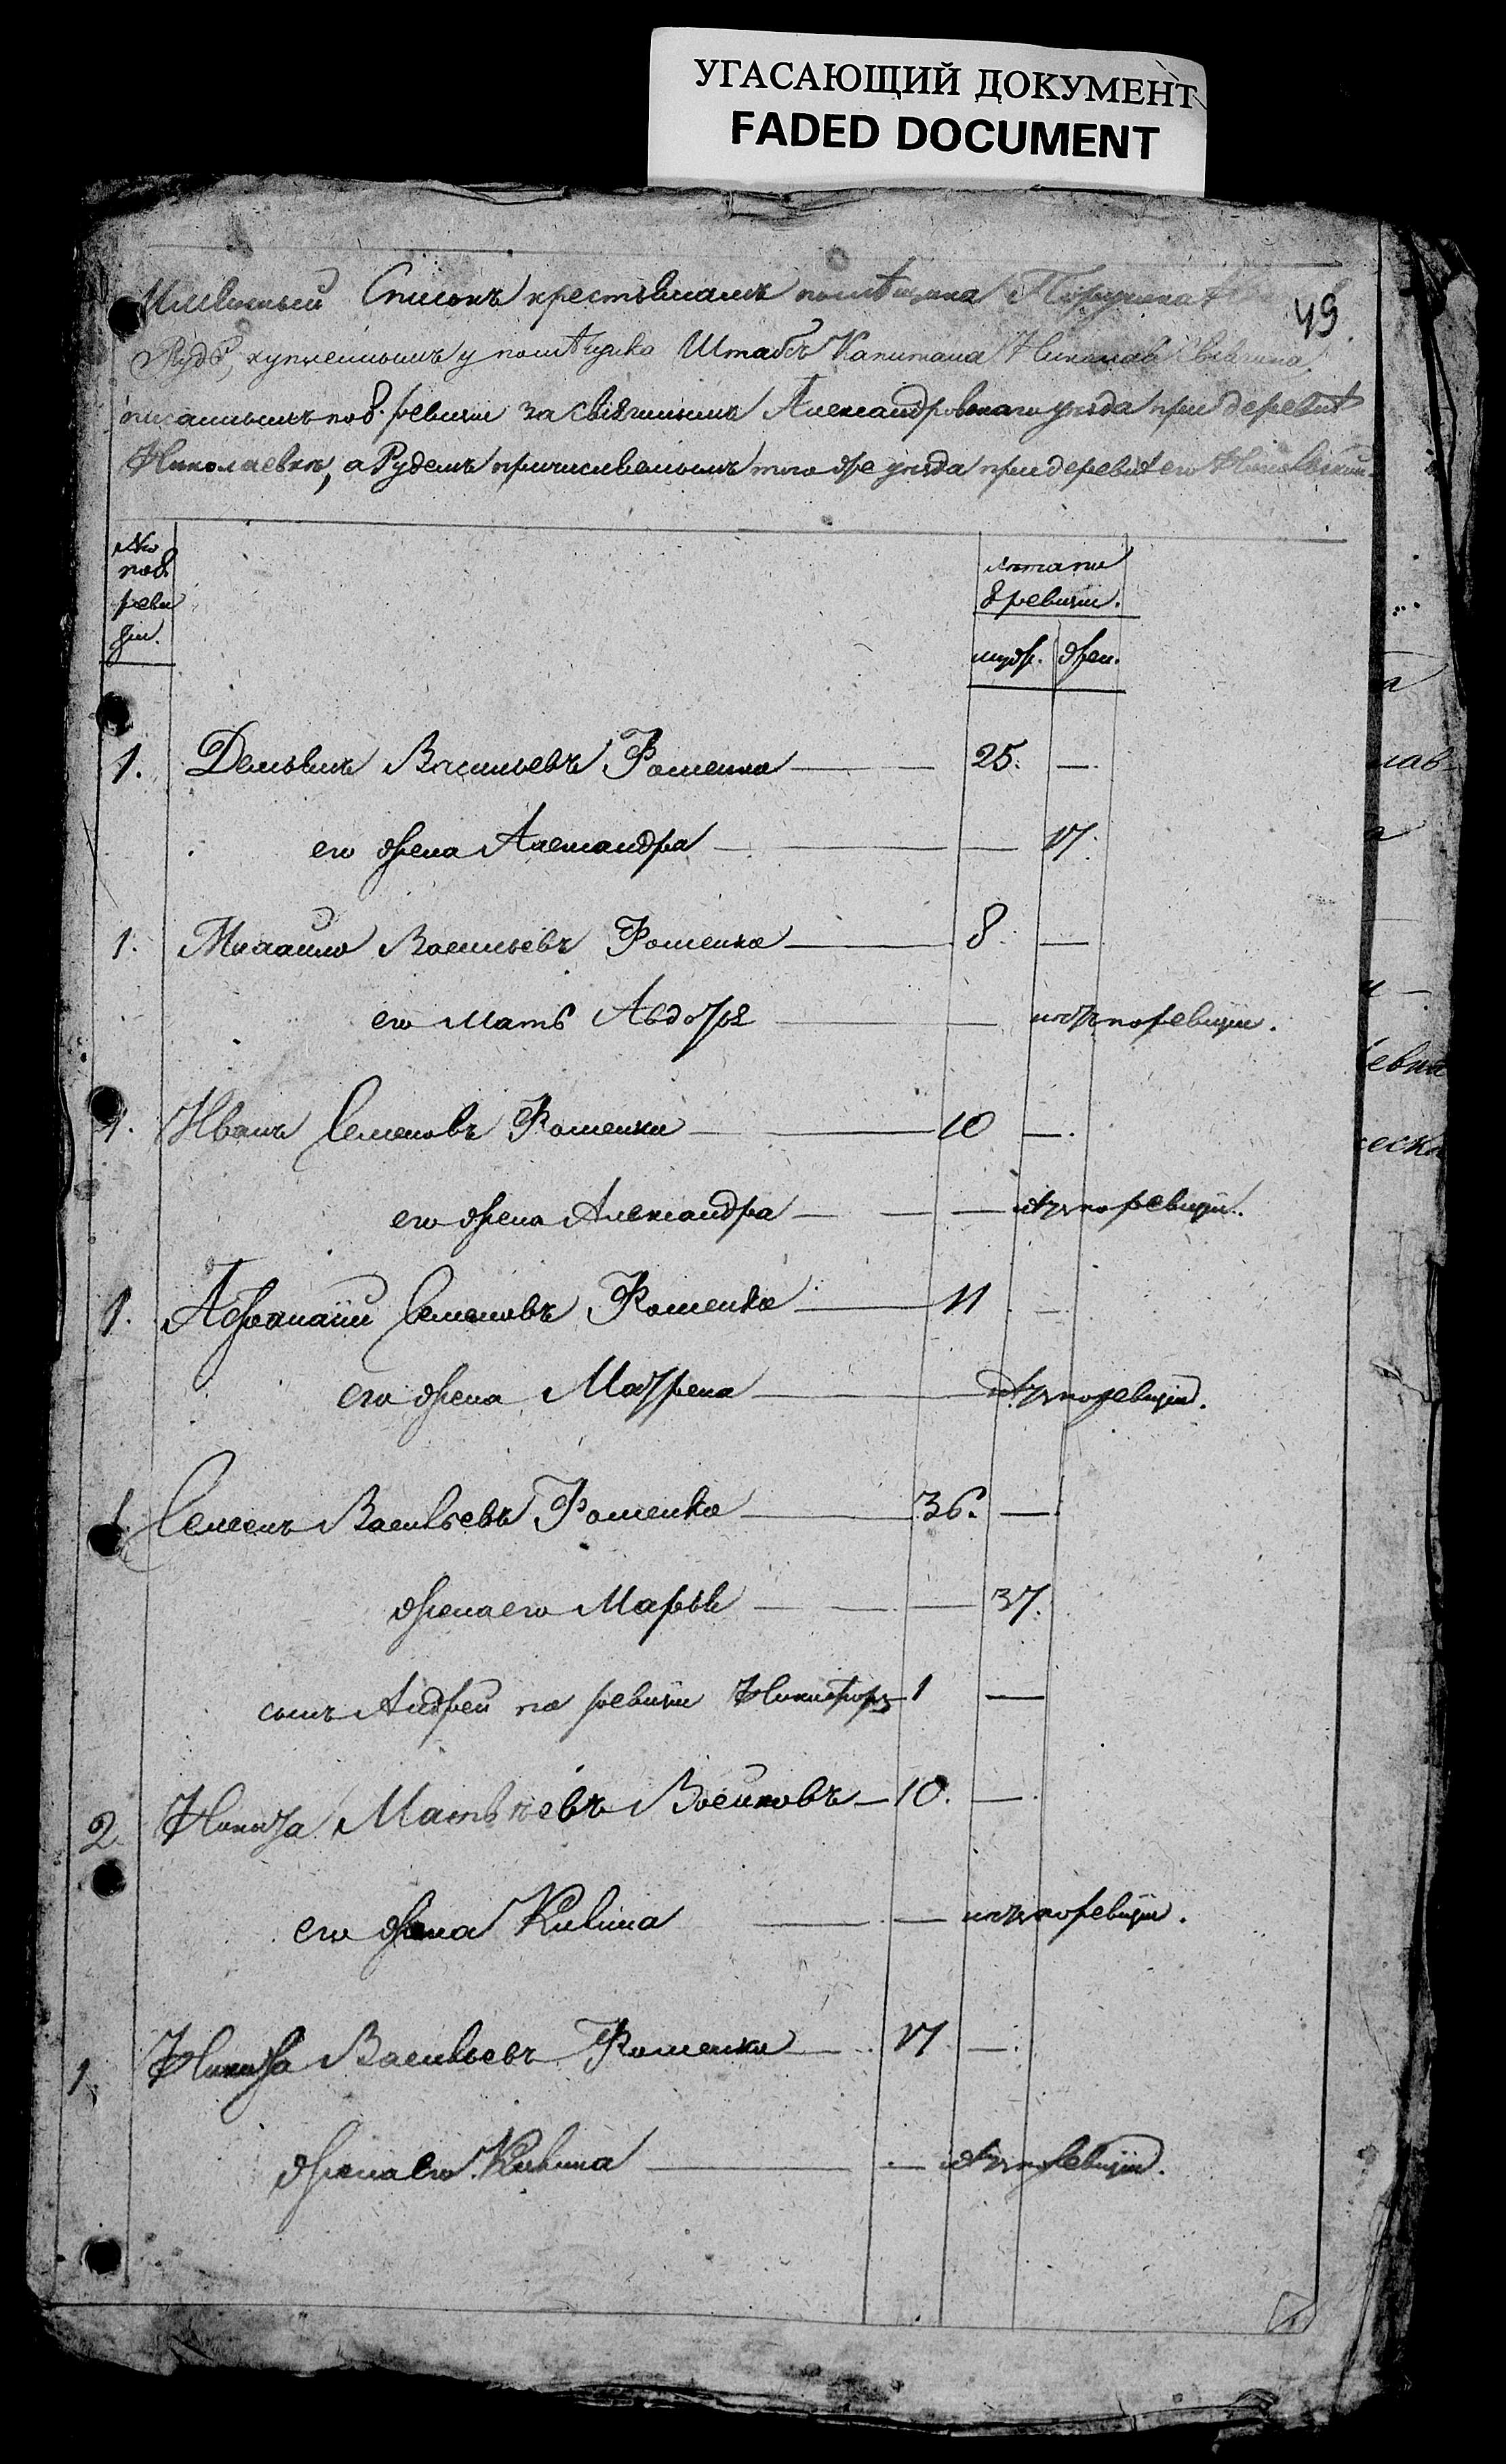 УГАСАЮЩИЙ ДОКУМЕНТ
FADED DOCUMENT
49
Имянный Списокъ крестьянамъ помѣщика Поручика
Рудь, купленнымъ у помѣщика Штабъ Капитана Николая Свѣчина
писаннымъ по 8. ревизіи за Свѣчинымъ Александровскаго уѣзда при деревнѣ
Николаевкѣ, а Рудемъ причисляемымъ того же уѣзда при деревнѣ его
№
по 8
реви
зіи.
лѣта по
8 ревизіи.
муж. жен.
1. Демьянъ Васильевъ Фоменко 25. —
его жена Александра — 17.
1. Михайло Васильевъ Фоменко 8. —
его мать Авдотья — нѣтъ по ревизіи.
1. Иванъ Семеновъ Фоменко 10 —
его жена Александра — нѣтъ по ревизіи.
1. Афанасій Семеновъ Фоменко 11 —
его жена Матрена — нѣтъ по ревизіи.
1. Семенъ Васильевъ Фоменко 36. —
жена его Марья — 37.
сынъ Андрей по ревизіи Никифоръ 1 —
2. Никита Матвѣевъ Войновъ 10. —
его жена Килина — нѣтъ по ревизіи.
1. Никита Васильевъ Фоменко 17 —
жена его Килина — нѣтъ по ревизіи.